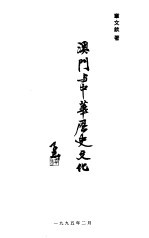 章文欽 著
澳門與中華歷史文化
一九九五年二月